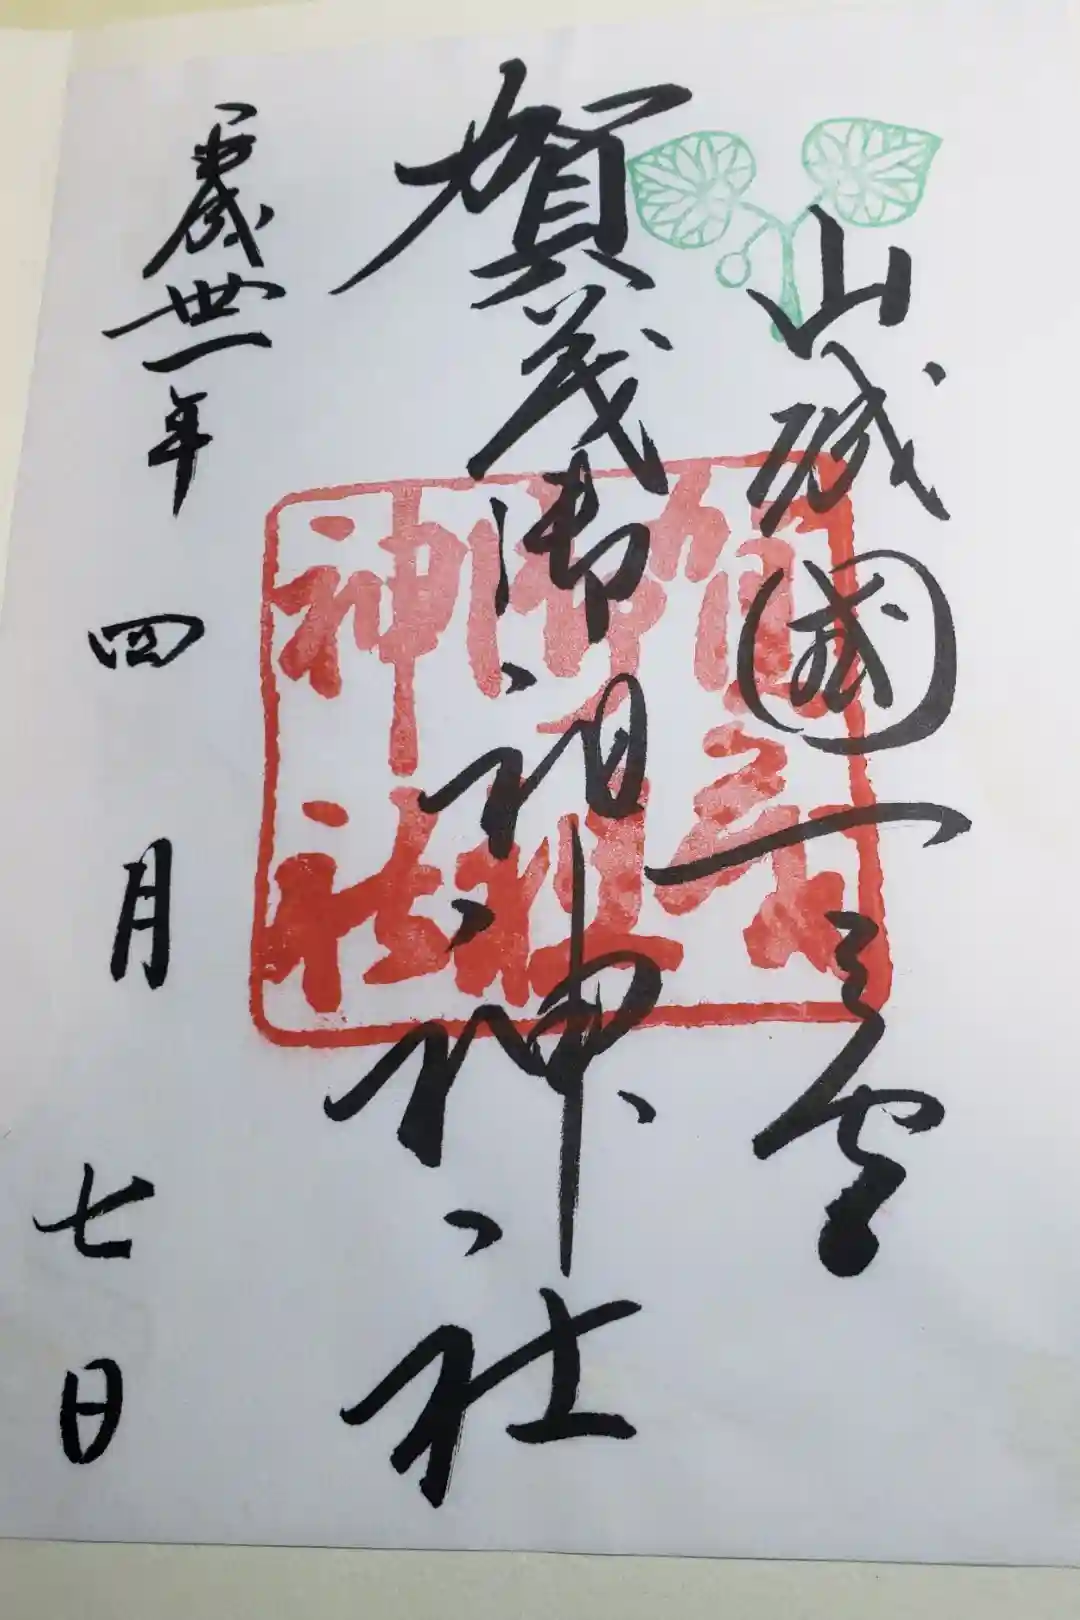 山城國一之宮
賀茂御祖神社
平成丗一年四月七日
賀茂
御祖
神社